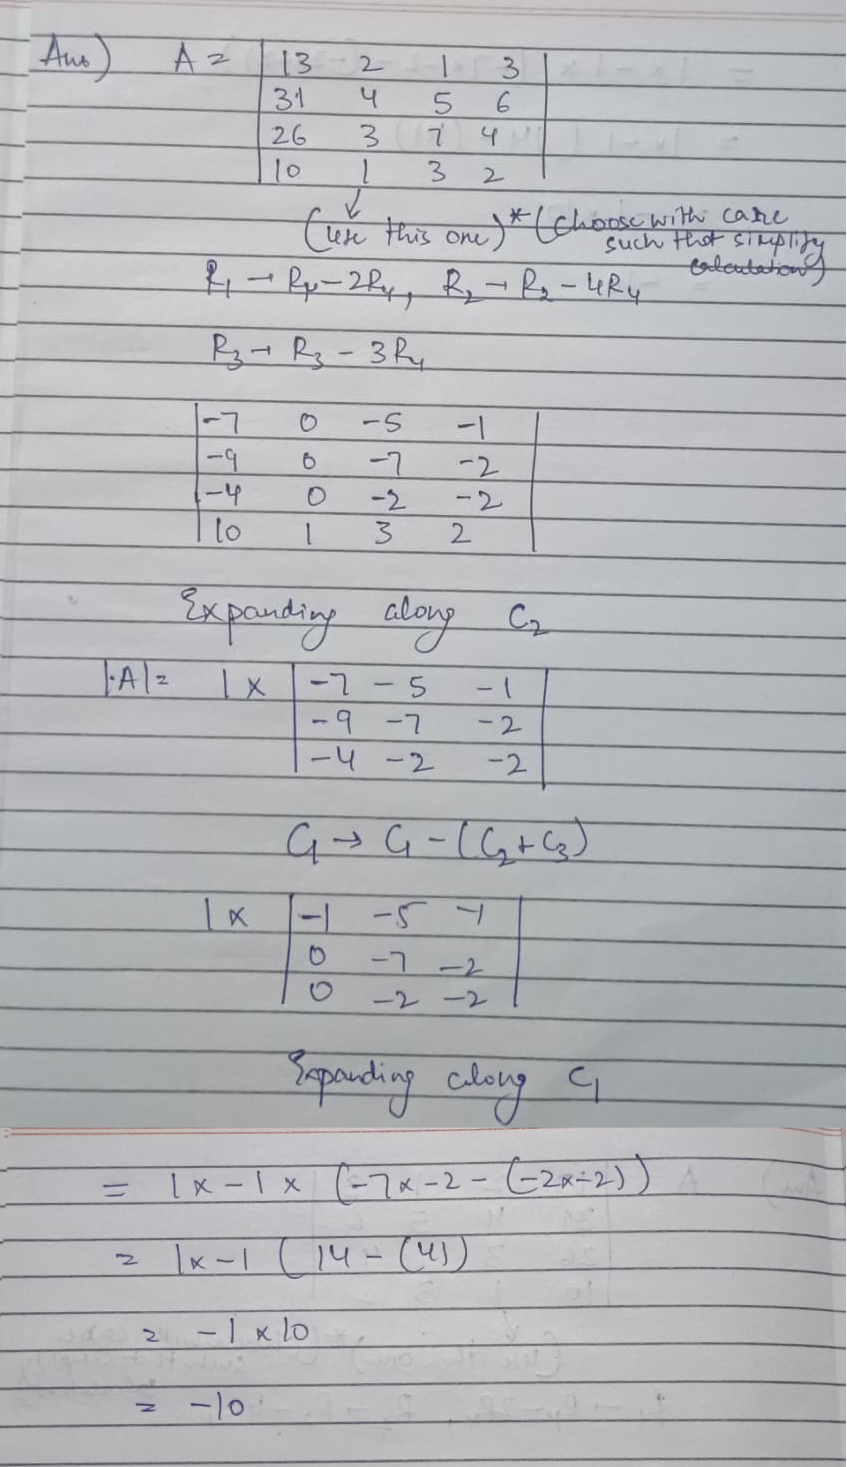 Ans) A = | 13 2 1 3 |
| 31 4 5 6 |
| 26 3 7 4 |
| 10 1 3 2 |
↓
(use this one) * (choose with care
such that simplify
calculations)
R₁ → R₁ - 2R₄, R₂ → R₂ - 4R₄
R₃ → R₃ - 3R₄
| -7 0 -5 -1 |
| -9 0 -7 -2 |
| -4 0 -2 -2 |
| 10 1 3 2 |
Expanding along C₂
|A| = 1 × | -7 -5 -1 |
| -9 -7 -2 |
| -4 -2 -2 |
C₁ → C₁ - (C₂ + C₃)
1 × | -1 -5 -1 |
| 0 -7 -2 |
| 0 -2 -2 |
Expanding along C₁
= 1 × -1 × (-7 × -2 - (-2 × -2))
= 1 × -1 (14 - (4))
= -1 × 10
= -10